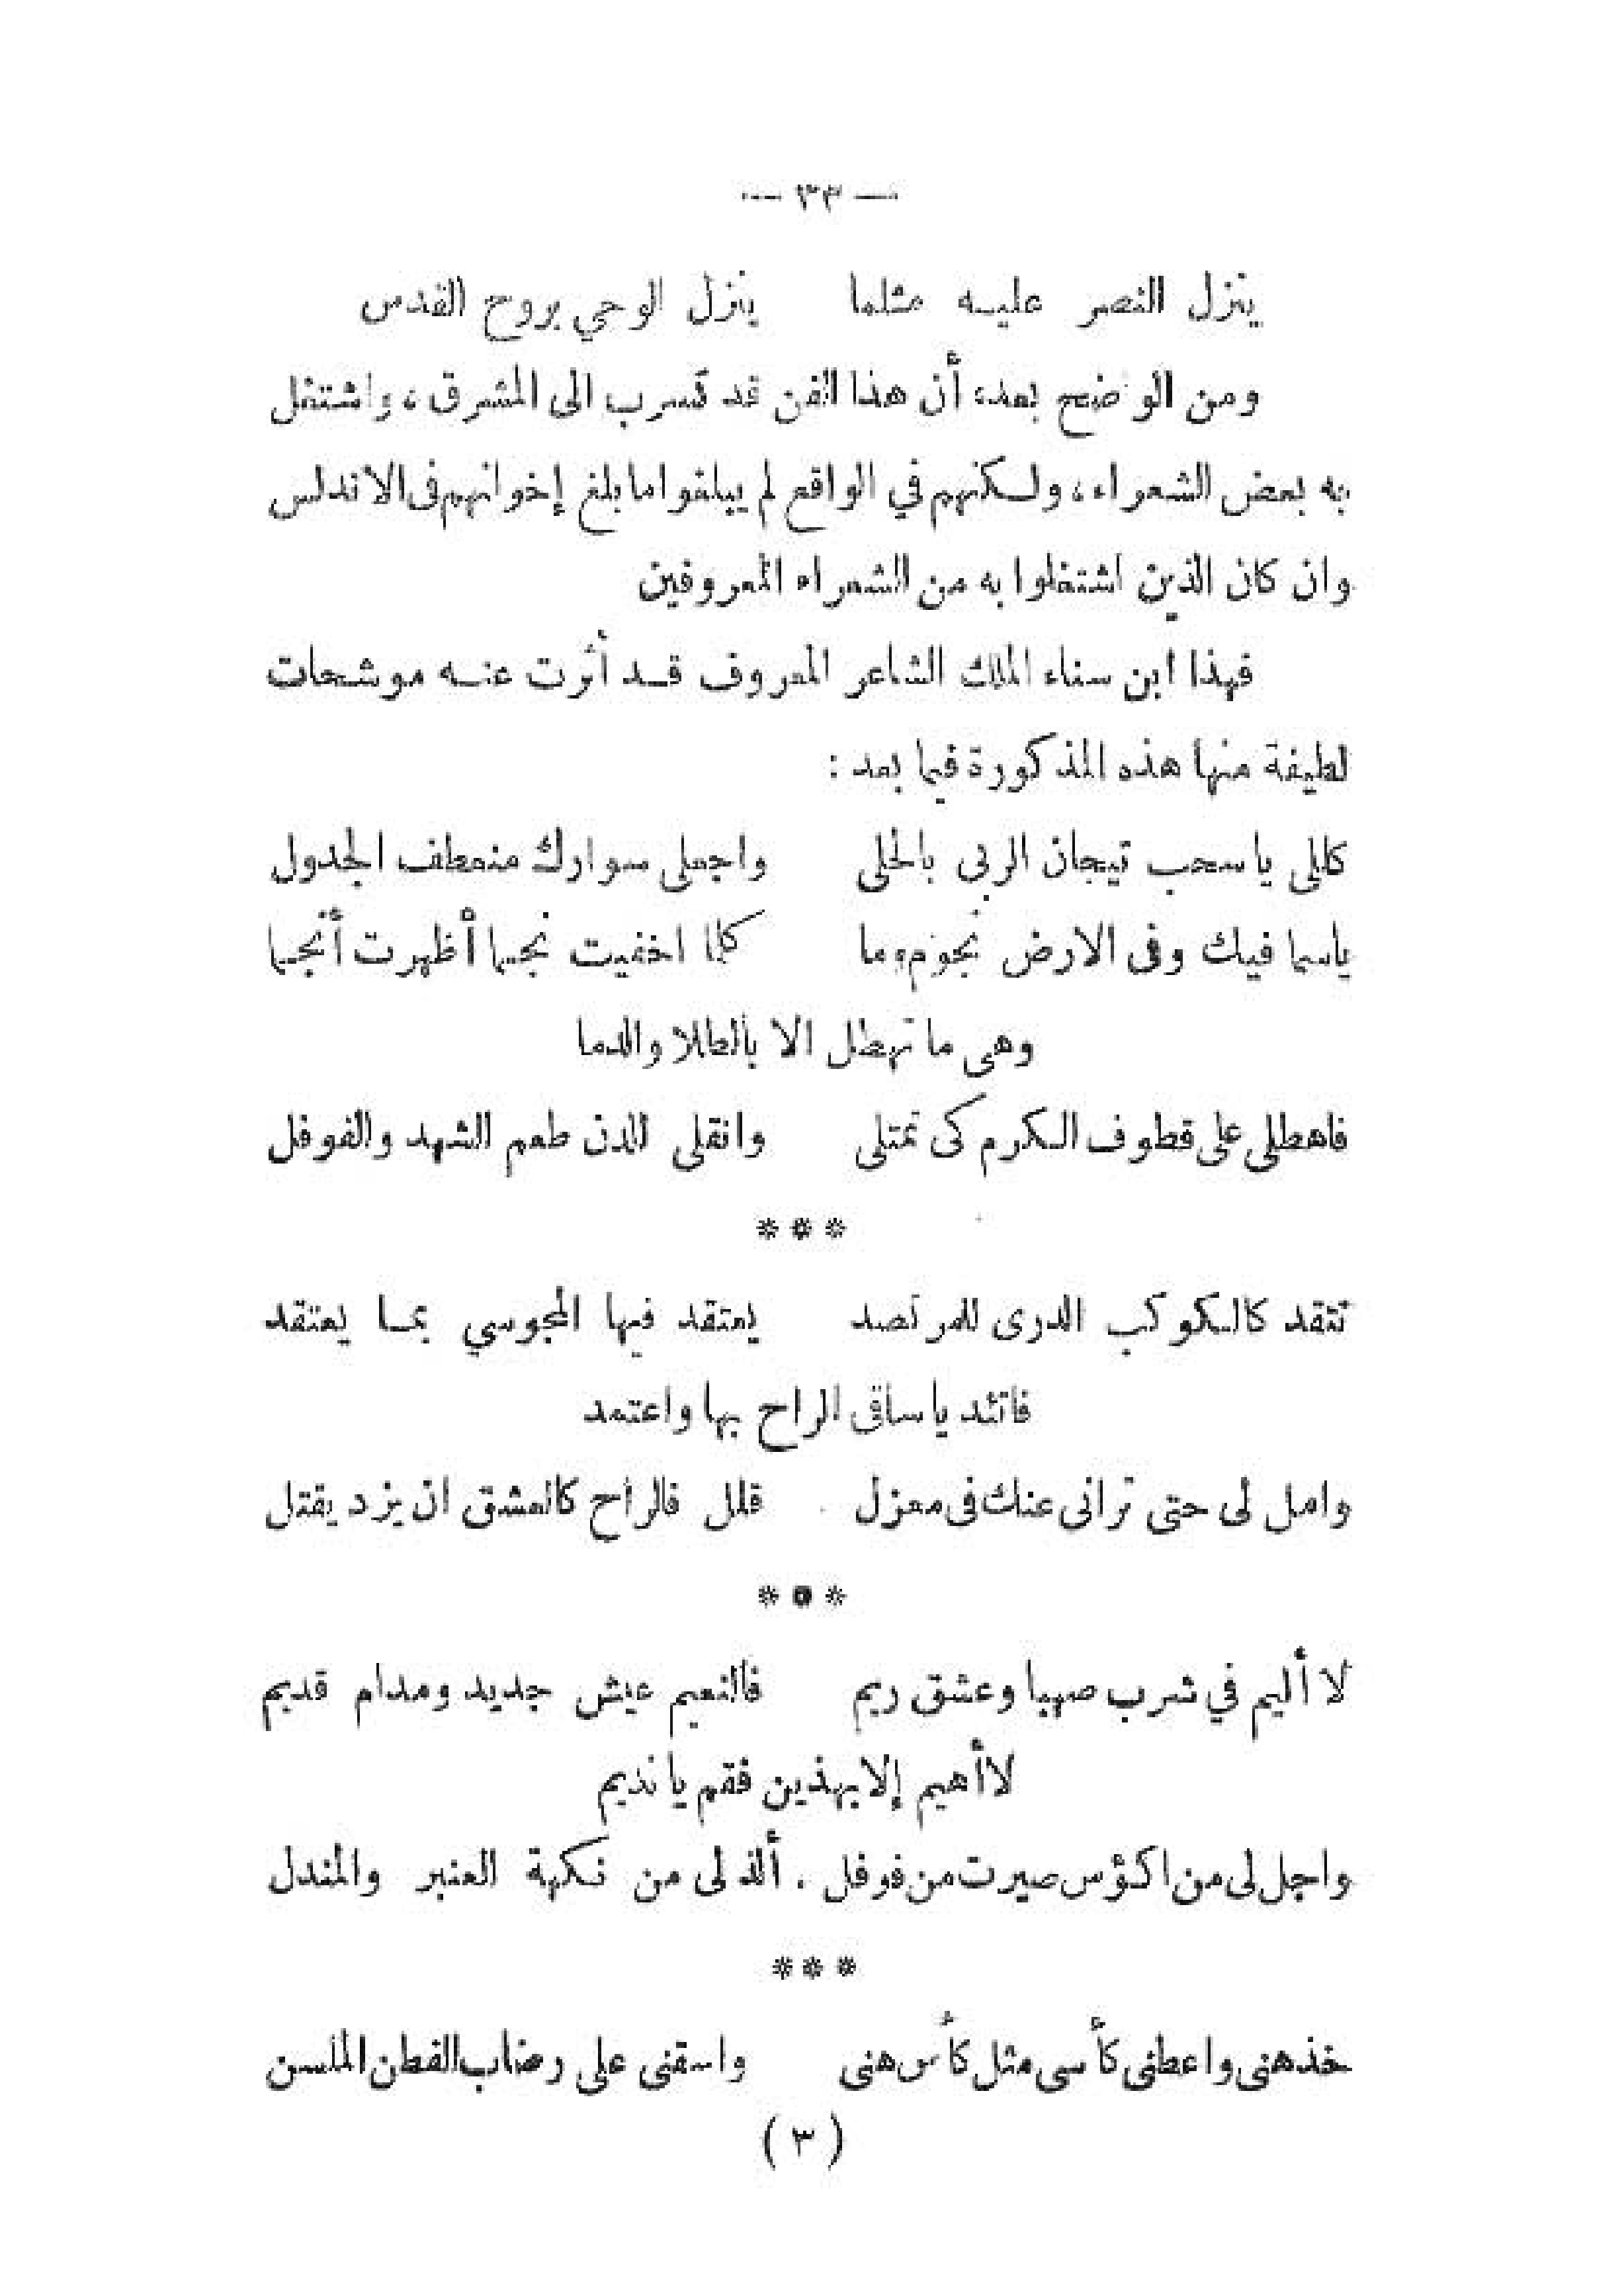 — ٣٣ —
ينزل النصر عليه مثلما ينزل الوحي بروح القدس
ومن الواضح بعد، أن هذا الفن قد تسرب الى المشرق، واشتغل
به بعض الشعراء، ولكنهم في الواقع لم يبلغوا ما بلغ إخوانهم فى الاندلس
وان كان الذين اشتغلوا به من الشعراء المعروفين
فهذا ابن سناء الملك الشاعر المعروف قد أثرت عنه موشحات
لطيفة منها هذه المذكورة فيما بعد :
كللى ياسحب تيجان الربى بالحلى واجعلى سوارك منعطف الجدول
ياسما فيك وفى الارض نجوم وما كلما اخفيت نجما أظهرت أنجما
وهى ما تهطل الا بالطلا والدما
فاهطلى على قطوف الكرم كى تمتلى وانقلى للدن طعم الشهد والفوفل
* * *
تتقد كالكوكب الدرى للمرتصد يعتقد فيها المجوسي بما يعتقد
فاتئد ياساقى الراح بها واعتمد
وامل لى حتى ترانى عنك فى معزل قلل فالراح كالعشق ان يزد يقتل
* * *
لا أليم في شرب صهبا وعشق ريم فالنعيم عيش جديد ومدام قديم
لا أهيم إلا بهذين فقم يا نديم
واجل لى من اكؤس صيرت من فوفل . ألذ لى من نكهة العنبر والمندل
* * *
خذ هنى واعطنى كأسى مثل كأس هنى واسقنى على رضاب الفطن الملسن
( ٣ )